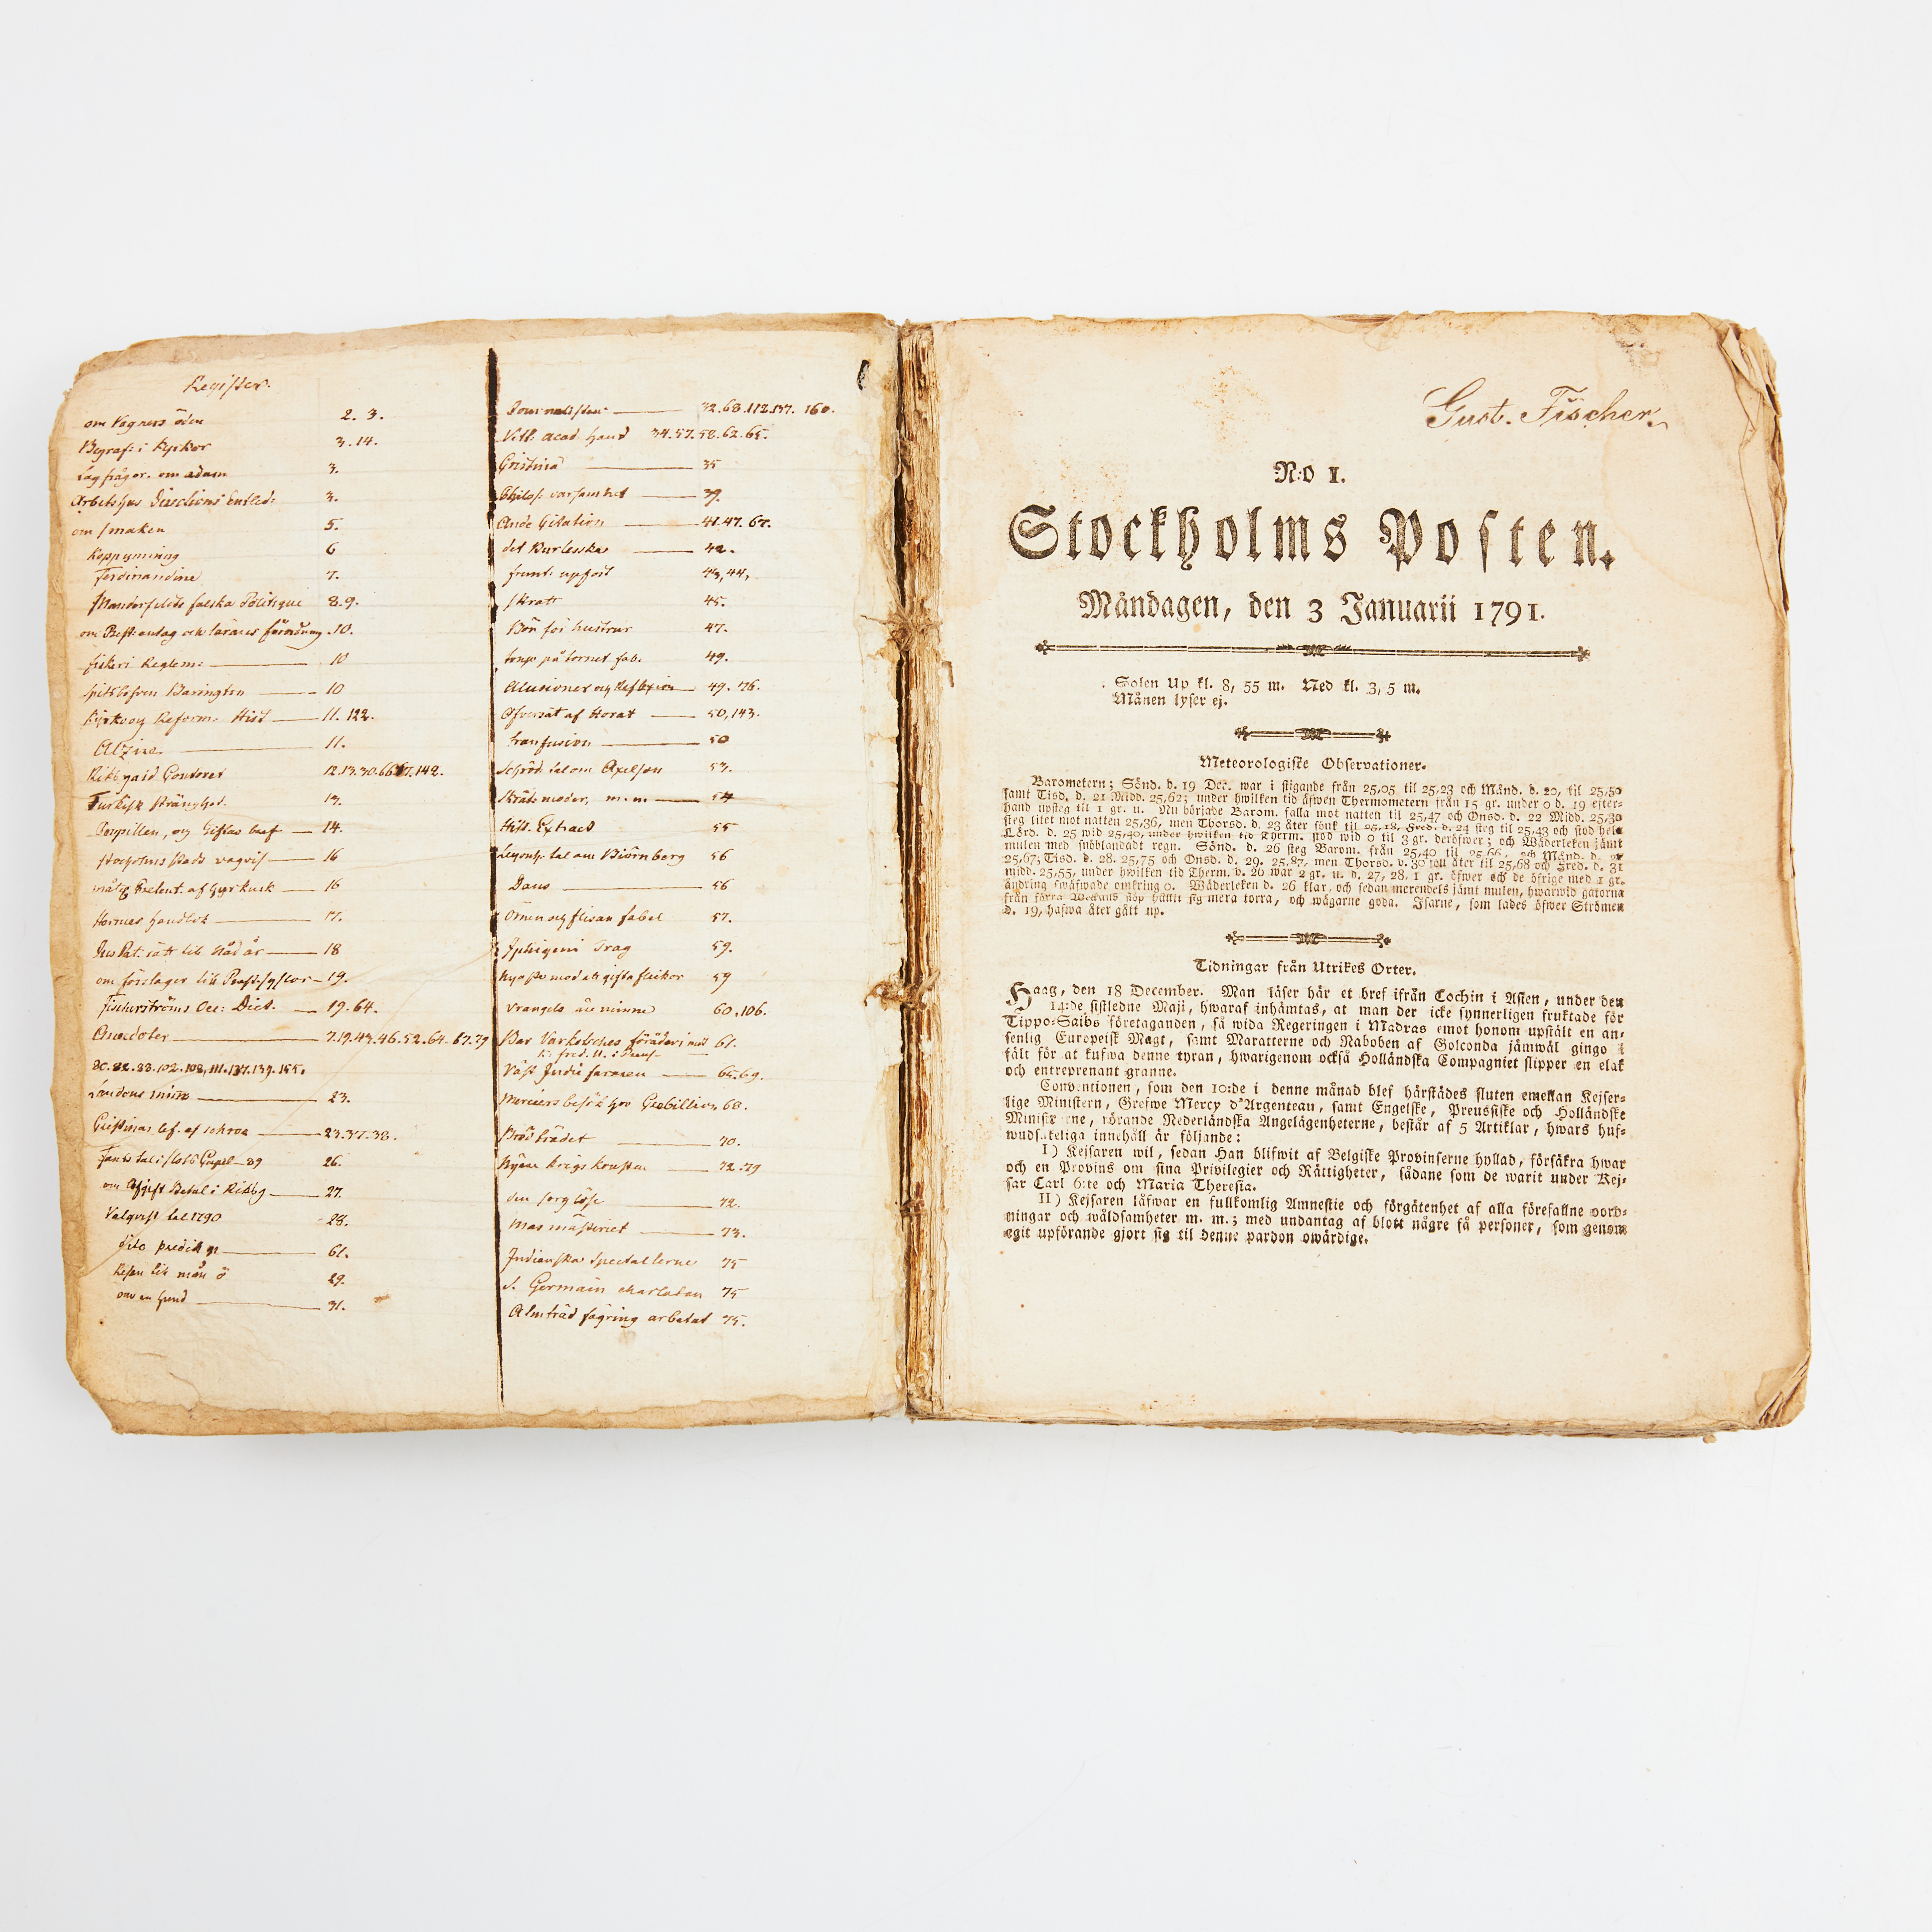 Register.
om Vagners öden 2. 3.
Begraf: i Kyrkor 3. 14.
Lagfrågor. om adeln 3.
Arbetshus Directions 3.
om smaken 5.
Koppympning 6
Ferdinandine 7.
Manderfelts falska Politique 8. 9.
om Prest. antag och lärares 10.
fiskeri Reglem: 10
Barington 10
Kyrk og Reform. Hist 11. 122.
Alzire 11.
Riksgäld Contoret 12. 13. 30. 66. 67. 142.
Turkisk stränghet. 13.
Pupillen, og bref 14.
Stocholms stads vagvis 16
16
Hornes handbok 17.
18
om förslager till 19.
Fischerströms Oec: Dict. 19. 64.
Anecdoter 7. 19. 43. 46. 52. 64. 67. 79
80. 82. 88. 102. 108, 111. 137. 139. 155.
Laudons minne 23.
Cristinas lef. af 23. 37. 38.
Fants tal i 89 26.
om Afgift Betal i Riksg 27.
Valqvist tal 1790 28.
dito predikn 61.
Resan till mån ö 29.
om en hund 31.
Journalisten 32. 68. 112. 137. 160.
Vitt. acad. hand 34. 57. 58. 62. 65.
Cristina 35
Philos. varsamhet 39.
Ande Citation 41. 47. 67.
det Burleska 42.
frunt. upfost 43, 44,
skratt 45.
Bön för hustrur 47.
på tornet fab. 49.
Alusioner og Reflexion 49. 76.
Öfversät af Horat 50, 143.
tranfusion 50
Schröd. tal om Axelson 53.
moder, m. m. 54
Hist. Extract 55
tal om Biörnberg 56
Dans 56
Ormen og flisan fabel 57.
Iphigeni trag 59.
Nyaste mod att gifta flickor 59
Vrangels minne 60. 106.
Bar Varkotsches föräderi mot 61.
K. fred. II. i
Väst Indie farmen 65. 69.
Merciers besök hos Crebillion 68.
Brödträdet 70.
Nyare krigskonsten 72. 79
den sorglöse 72.
masmästeriet 73.
Indianska Spectaclerne 75
S. Germain charlatan 75
Almträd fägring arbetat 75.
Gust. Fischer.
N:o 1.
Stockholms Posten.
Måndagen, den 3 Januarii 1791.
Solen Up kl. 8, 55 m. Ned kl. 3, 5 m.
Månen lyser ej.
Meteorologiske Observationer.
Barometern; Sönd. d. 19 Dec. war i stigande från 25,05 til 25,23 och Månd. d. 20, til 25,50
samt Tisd. d. 21 Midd. 25,62; under hwilken tid äfwen Thermometern från 15 gr. under 0 d. 19 efter-
hand upsteg til 1 gr. u. Nu började Barom. falla mot natten til 25,47 och Onsd. d. 22 Midd. 25,30
steg litet mot natten 25,36, men Thorsd. d. 23 åter sönk til 25,18, Fred. d. 24 steg til 25,43 och stod hela
Lörd. d. 25 wid 25,40, under hwilken tid Therm. stod wid 0 til 3 gr. deröfwer; och Wäderleken jämt
mulen med snöblandadt regn. Sönd. d. 26 steg Barom. från 25,40 til 25,66, och Månd. d. 27
25,67; Tisd. d. 28. 25,75 och Onsd. d. 29. 25,87, men Thorsd. d. 30 föll åter til 25,68 och Fred. d. 31
midd. 25,55, under hwilken tid Therm. d. 26 war 2 gr. u. d. 27, 28, 1 gr. öfwer och de öfrige med 1 gr.
ändring swäfwade omkring 0. Wäderleken d. 26 klar, och sedan merendels jämt mulen, hwarwid gatorna
från förra Weckans slöp hållit sig mera torra, och wägarne goda. Isarne, som lades öfwer Strömen
d. 19, hafwa åter gått up.
Tidningar från Utrikes Orter.
Haag, den 18 December. Man läser här et bref ifrån Cochin i Asien, under den
14:de sistledne Maji, hwaraf inhämtas, at man der icke synnerligen fruktade för
Tippo-Saibs företaganden, så wida Regeringen i Madras emot honom upstält en an-
senlig Europeisk Magt, samt Maratterne och Naboben af Golconda jämwäl gingo i
fält för at kufwa denne tyran, hwarigenom också Holländska Compagniet slipper en elak
och entreprenant granne.
Conventionen, som den 10:de i denne månad blef härstädes sluten emellan Kejser-
lige Ministern, Grefwe Mercy d'Argenteau, samt Engelske, Preussiske och Holländske
Ministrerne, rörande Nederländska Angelägenheterne, består af 5 Artiklar, hwars huf-
wudsakeliga innehåll är följande:
I) Kejsaren wil, sedan Han blifwit af Belgiske Provinserne hyllad, försäkra hwar
och en Provins om sina Privilegier och Rättigheter, sådane som de warit under Kej-
sar Carl 6:te och Maria Theresia.
II) Kejsaren låfwar en fullkomlig Amnestie och förgätenhet af alla förefallne oord-
ningar och wåldsamheter m. m.; med undantag af blott någre få personer, som genom
egit upförande gjort sig til denne pardon owärdige.